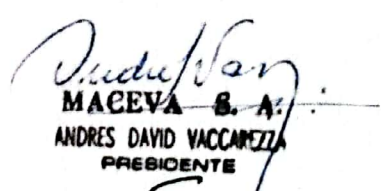 MACEVA S. A.
ANDRES DAVID VACCAREZZA
PRESIDENTE